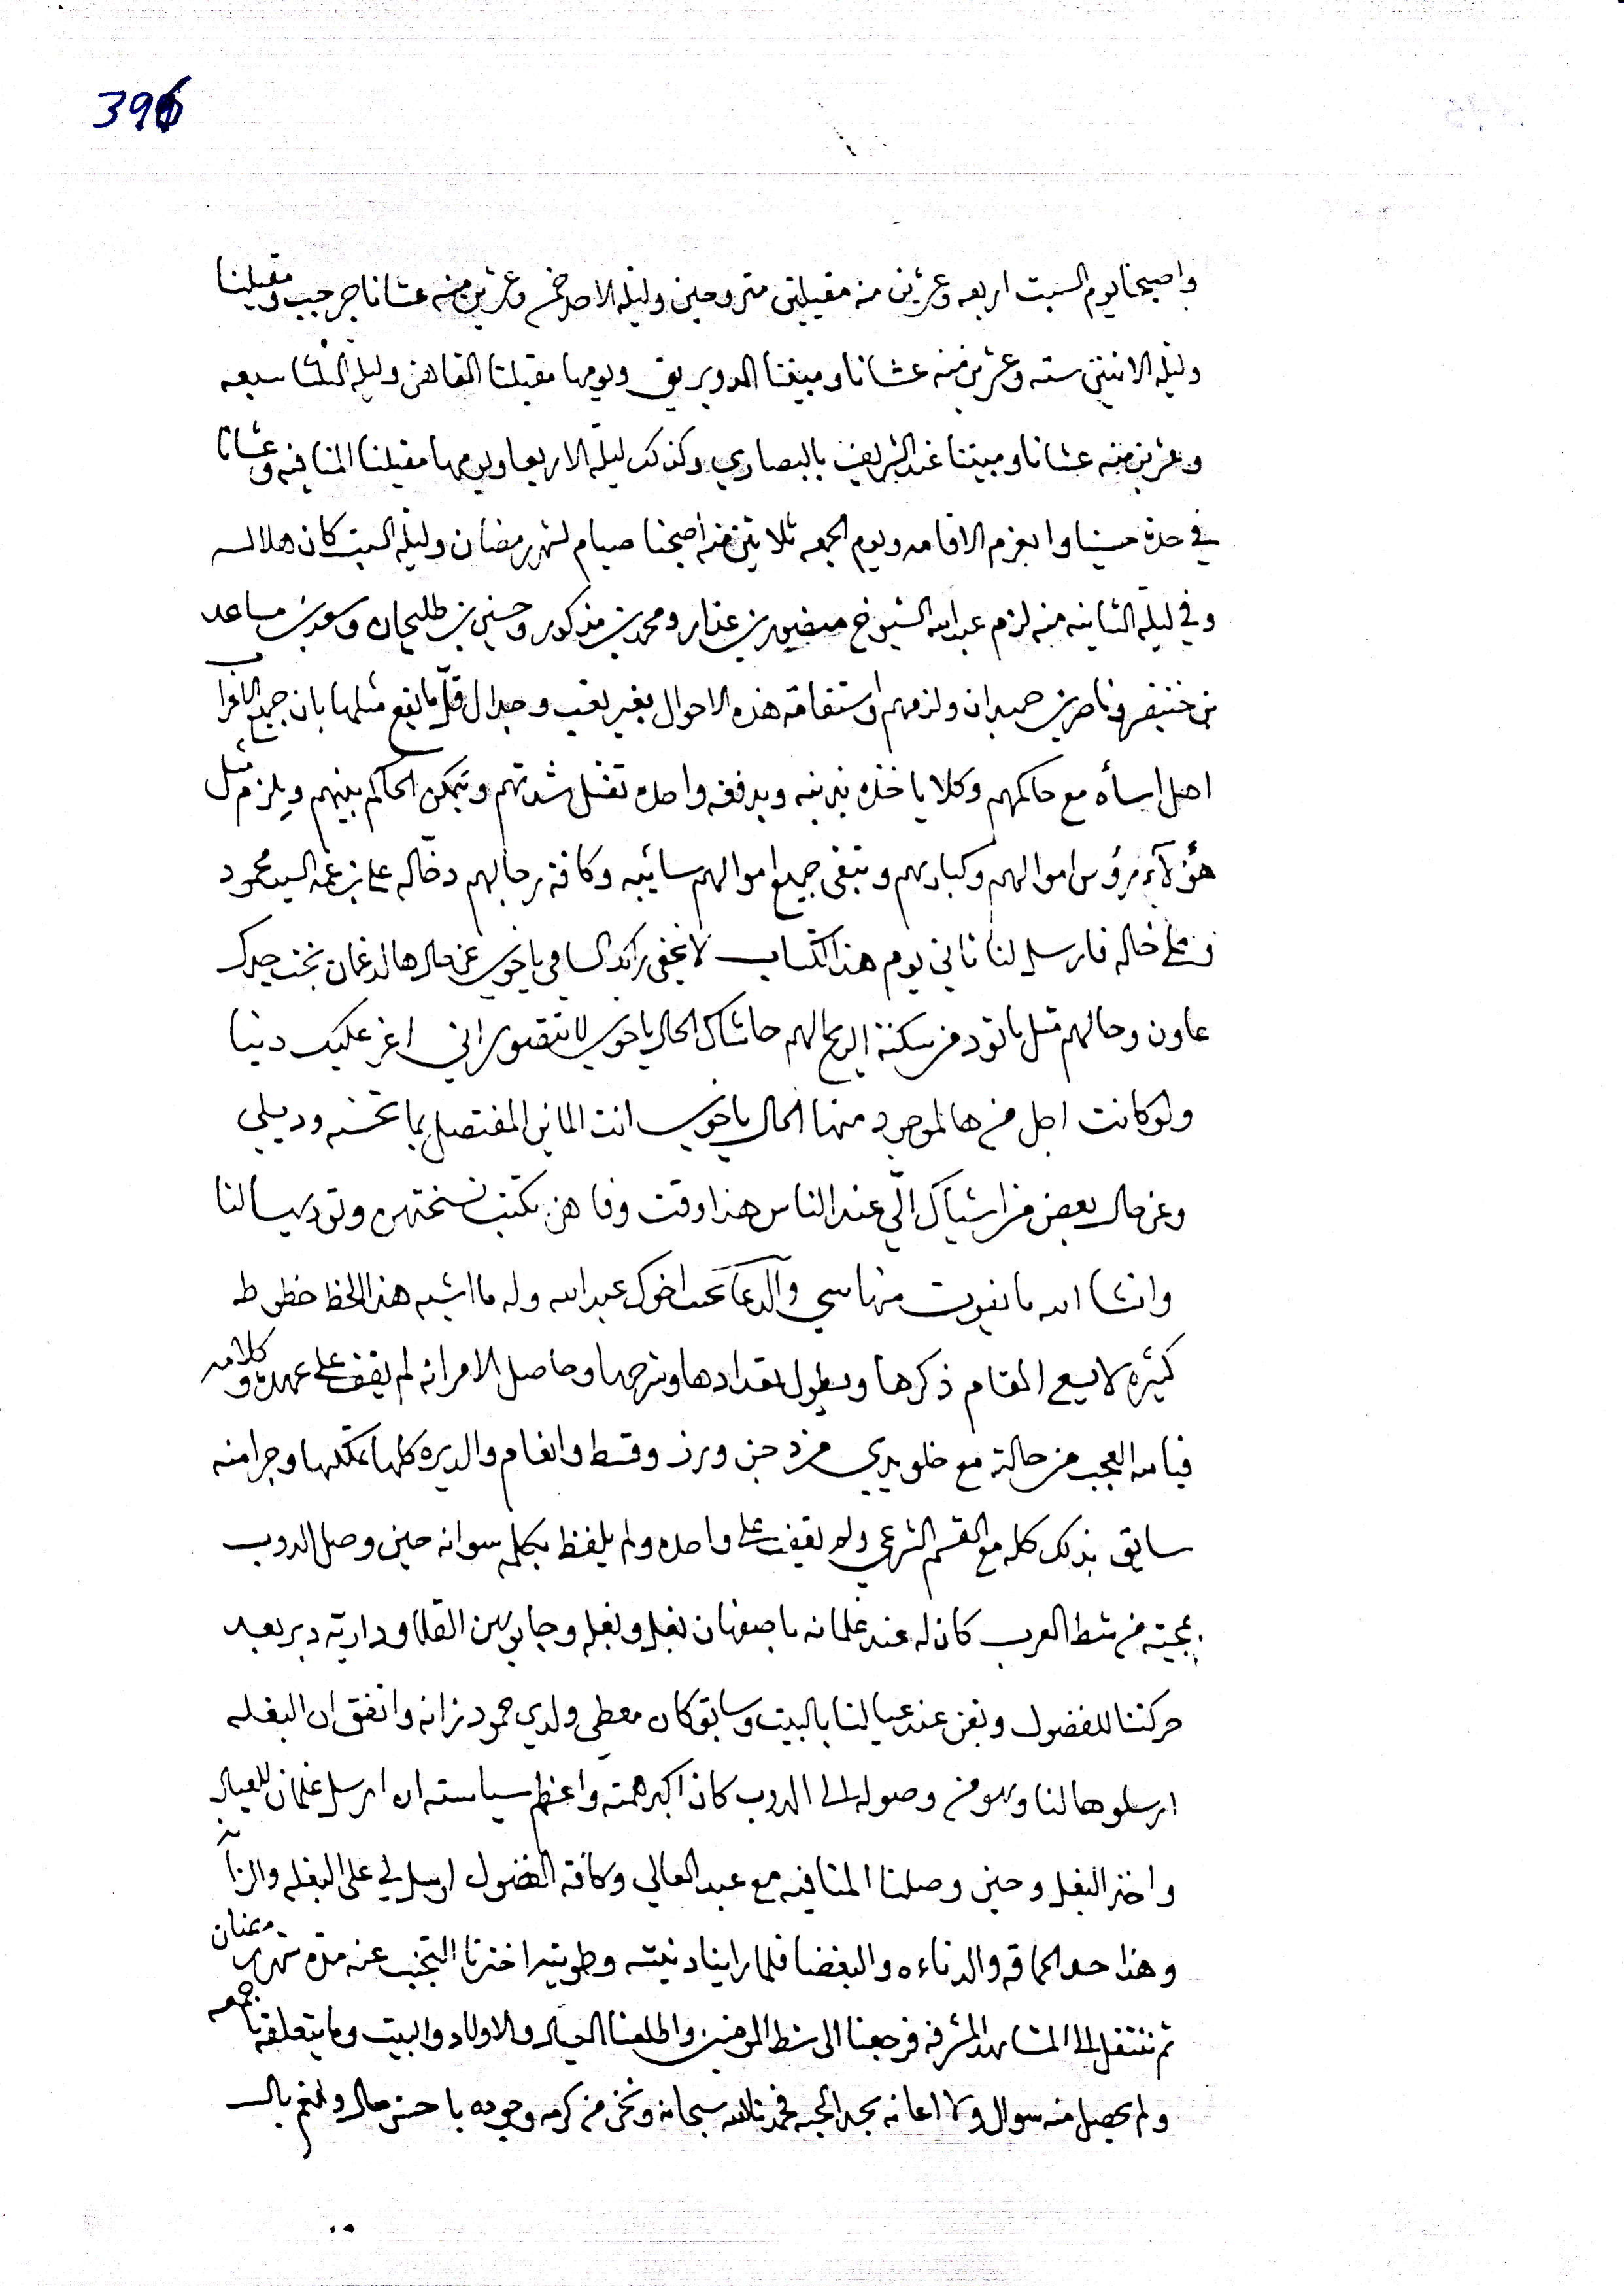 396
واصبحنا يوم السبت اربعه وعشرين منه مقيلين متروحين وليله الاحد خمس وعشرين منه عشانا جرجيب ومقيلنا
وليله الاثنين سته وعشرين منه عشانا ومبيتنا الدويريق ويومها مقيلنا القاهن وليله الثلثا سبعه
وعشرين منه عشانا ومبيتنا عند الشريف بالبصاري وكذلك ليلة الاربعا ويومها مقيلنا المنافيه وعشانا
في حدة حسينا وا بعزم الاقامه ويوم الجمعه ثلاثين منه اصبحنا صيام لشهر رمضان وليله السبت كان هلاله
وفي ليلة الثانيه منه لزم عبدالله الشيوخ منصور بن عذار ومحمد بن مذكور وحسين بن طليحان وسعد بن مساعد
بن خنيفر وناصر بن حميدان ولزمهم واستقامة هذه الاحوال بغير تعب وجدال قل ما يقع مثلها بان جميع الاعراب
اهل اساه مع حاكمهم وكلا ياخذه بذنبه وبدفعه واحده تفشل شدتهم ويتمكن الحاكم بينهم ويلزم مثل
هؤلآء رؤس اموالهم وكبارهم وتبقى جميع اموالهم سائبه وكافة رجالهم دخاله على بن عمه السيد محمود
وعلى خاله فارسل لنا ثاني يوم هذا الكتاب لا يخفى رائد السامي ياخوي عن حال هالدغمان بخت جدك
عاون وحالهم مثل ما تود من سكنة الريح لهم حاشاك الحال ياخوي لا تتصور اني اعز عليك دنيا
ولو كانت اجل من هالموجود منها الحال ياخوي انت الماين المفتصل بما تحسنه ودبيلي
وعن حال بعض من اشياك الي عند الناس هذا وقت وفا هن تكتب نسختهن وتوديها لنا
وانشا الله ما يفوت منها شي والدعا محب اخوك عبدالله وله ما اشبه هذا الخط خطوط
كثيره لا يسع المقام ذكرها ويطول تعدادها وشرحها وحاصل الامر انه لم يقف على عهده وكلامه
فيا لله العجب من حالته مع خلو يدي من دخن ورز وقسط وانعام والديره كلها بملكها وجرا منه
سابق بذلك كله مع القسم الشرعي ولم يقف على واحده ولم يلفظ بكلمه سوا انه حين وصل الدوب
بمجيته من شط العرب كان له عند غلمانه باصفهان بغل وبغله وجايبهن القلاودارية دبر بعد
حركتنا للفضول وبقن عند عيالنا بالبيت وسابق كان معطي ولدي حمود زانه واتفق ان البغله
ارسلوها لنا وهو من وصوله الى الدوب كان اكبر همته واعظم سياسته ان ارسل غلمان للعيال
واخذ البغل وحين وصلنا المنافيه مع عبد العالي وكافة الفضول ارسل لي على البغله والزانه
وهذا حد الحماقه والدناءه والبغضا فلما راينا دنيته وطويته اخترنا التجنب عنه مدة شهر رمضان
ثم ننتقل الى المشاهد المشرفه فرجعنا الى شط المومنين واطلعنا العيال والاولاد والبيت وما يتعلق بنا جمعه
ولم يحصل منه سوال ولا اعانه بحد الحبه فحمدنا الله سبحانه ونحن من كرمه وجوده باحسن حال وانعم بال